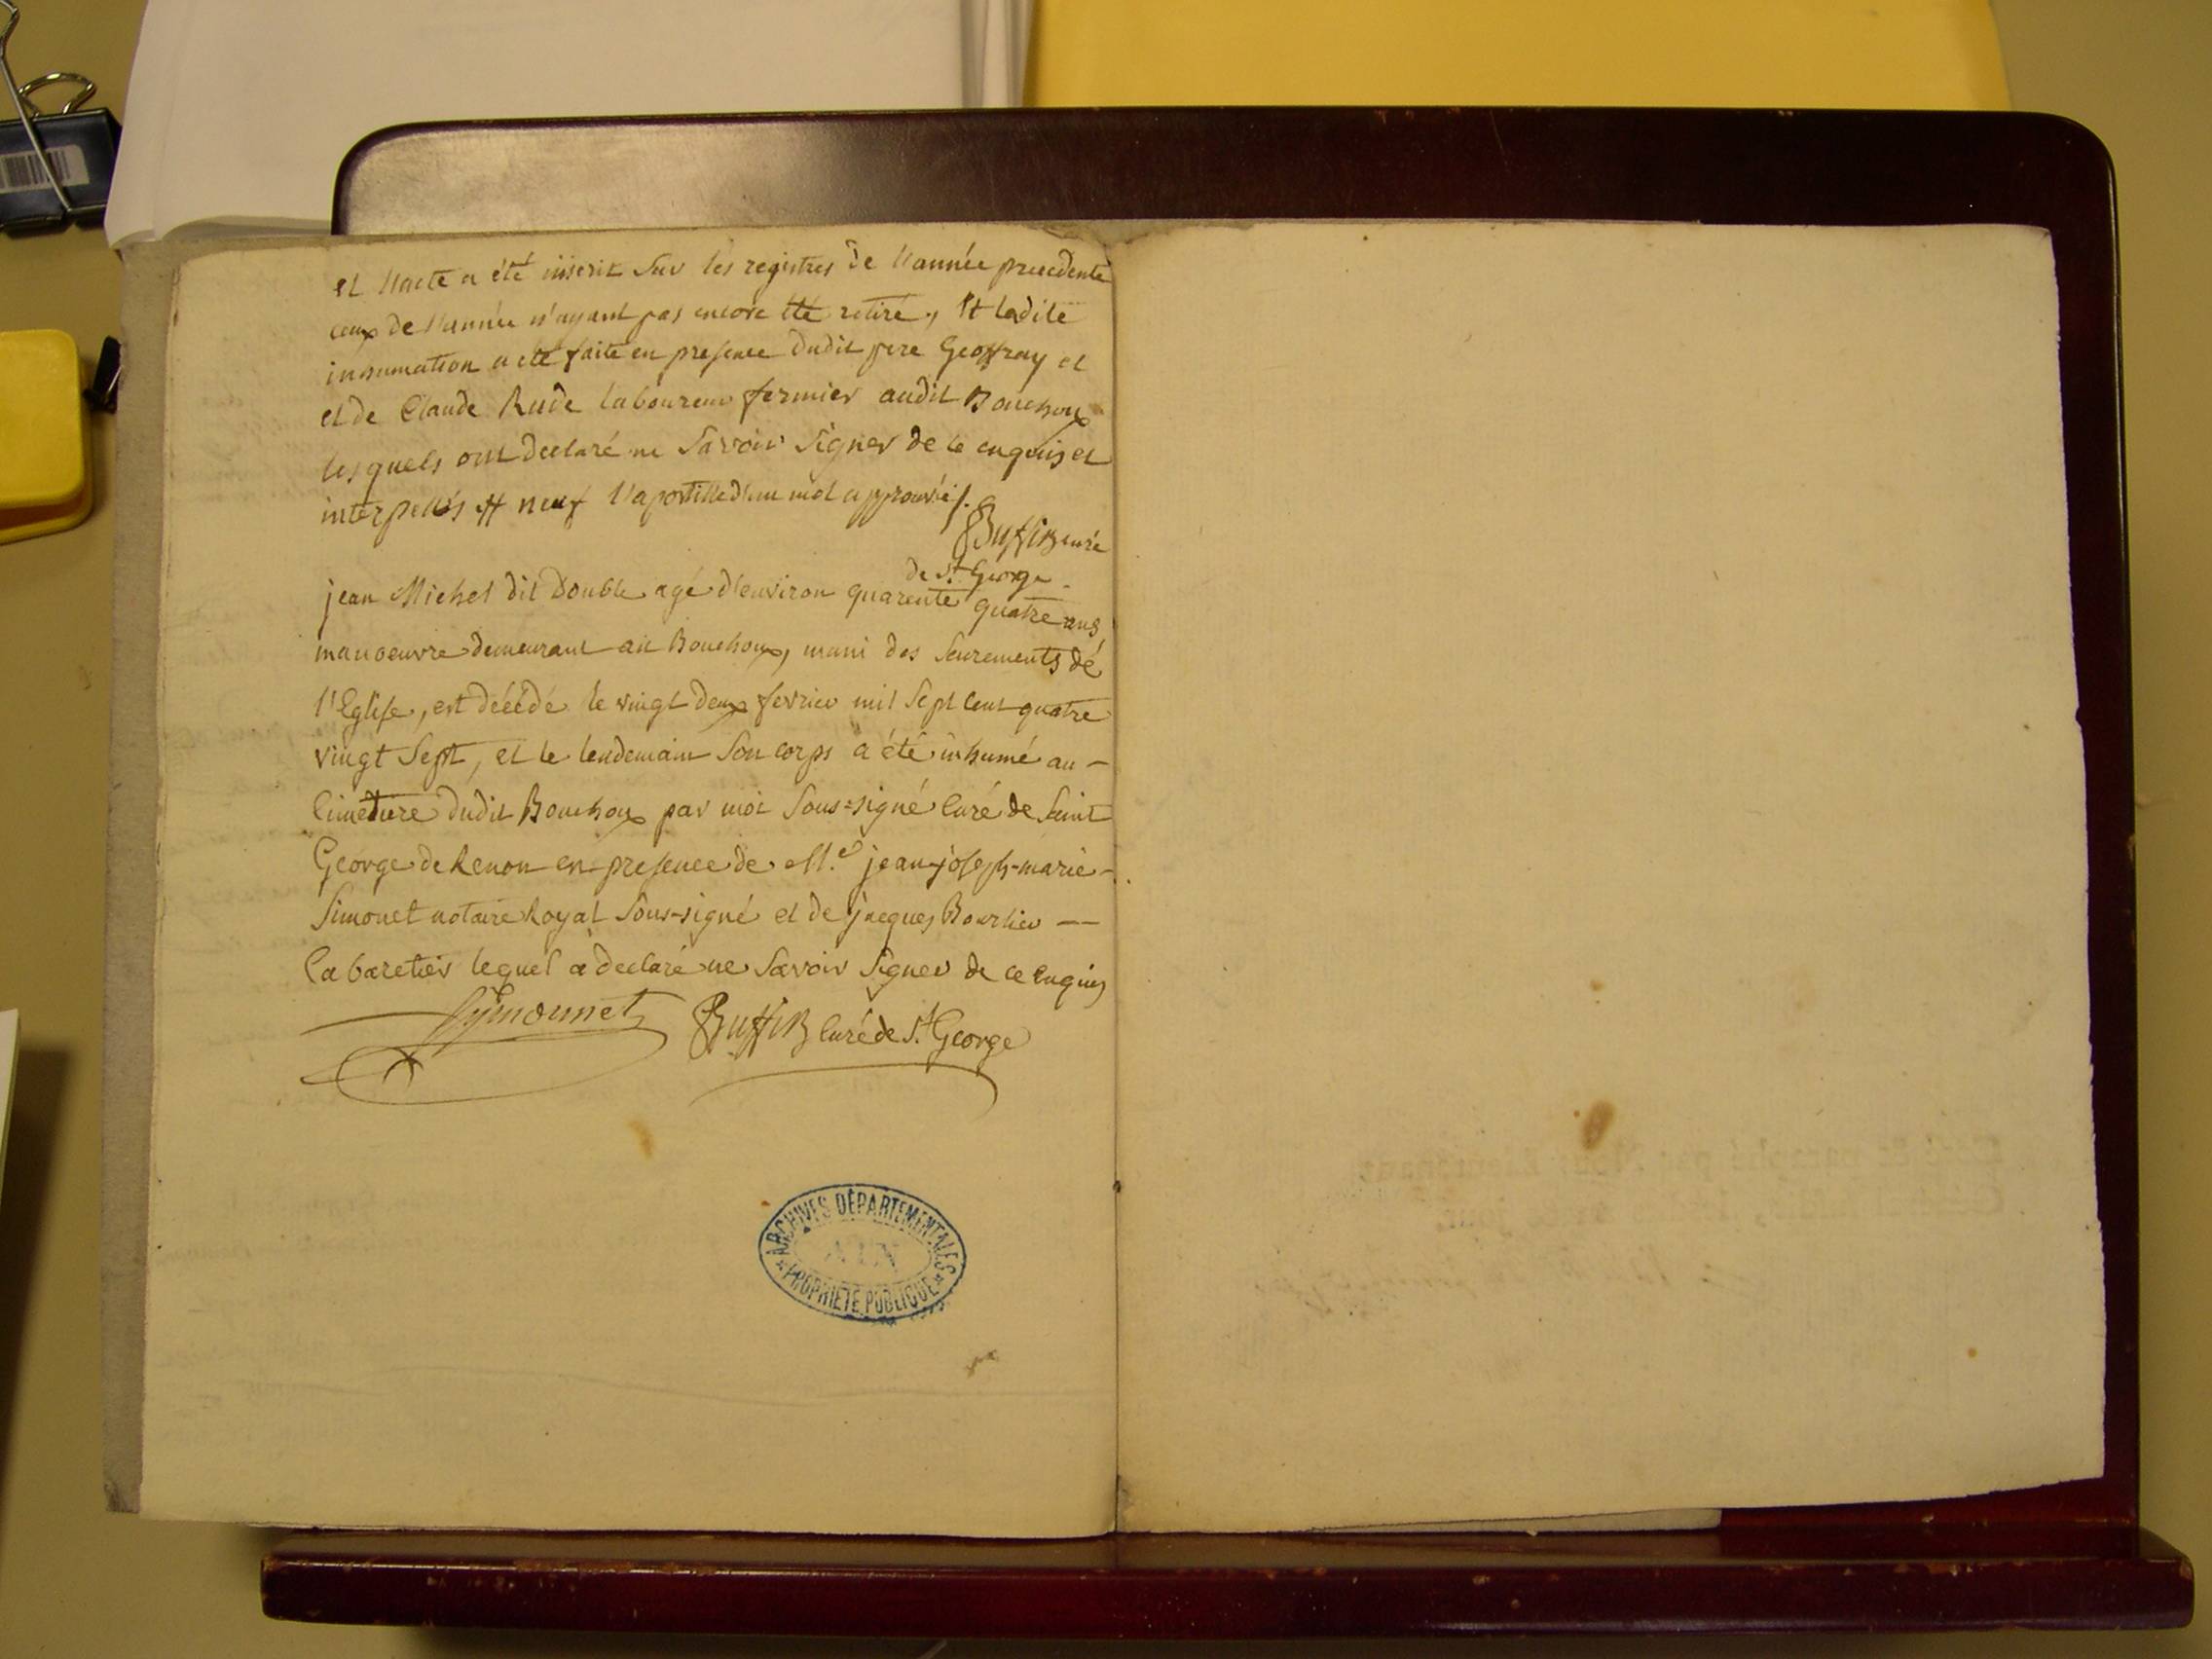 et l'acte a été inscrit sur les registres de l'année precedente
ceux de l'année n'ayant pas encore été retiré, et ladite
inhumation a été faite en presence dudit pere Geoffray et
et de Claude Rude laboureur fermier audit Bouchoux
lesquels ont declaré ne savoir signer de ce enquis et
interpellés # neuf l'apostille d'un mot approuvée ./.
Buffin curé
de St George
jean Michel dit Double agé d'environ quarente quatre ans
manoeuvre demeurant au Bouchoux, muni des seurements de
l'Eglise, est décédé le vingt deux fevrier mil sept cent quatre
vingt sept, et le lendemain son corps a été inhumé au -
Cimetiere dudit Bouchoux par moi sous=signé Curé de Saint
George de Renon en presence de M.e jean-joseph-marie -
Simonet notaire Royal sous-signé et de jacques Bourlier —
Cabaretier lequel a declaré ne savoir signer de ce enquis
Symonnet Buffin Curé de St George
ARCHIVES DÉPARTEMENTALES
AIN
PROPRIÉTÉ PUBLIQUE